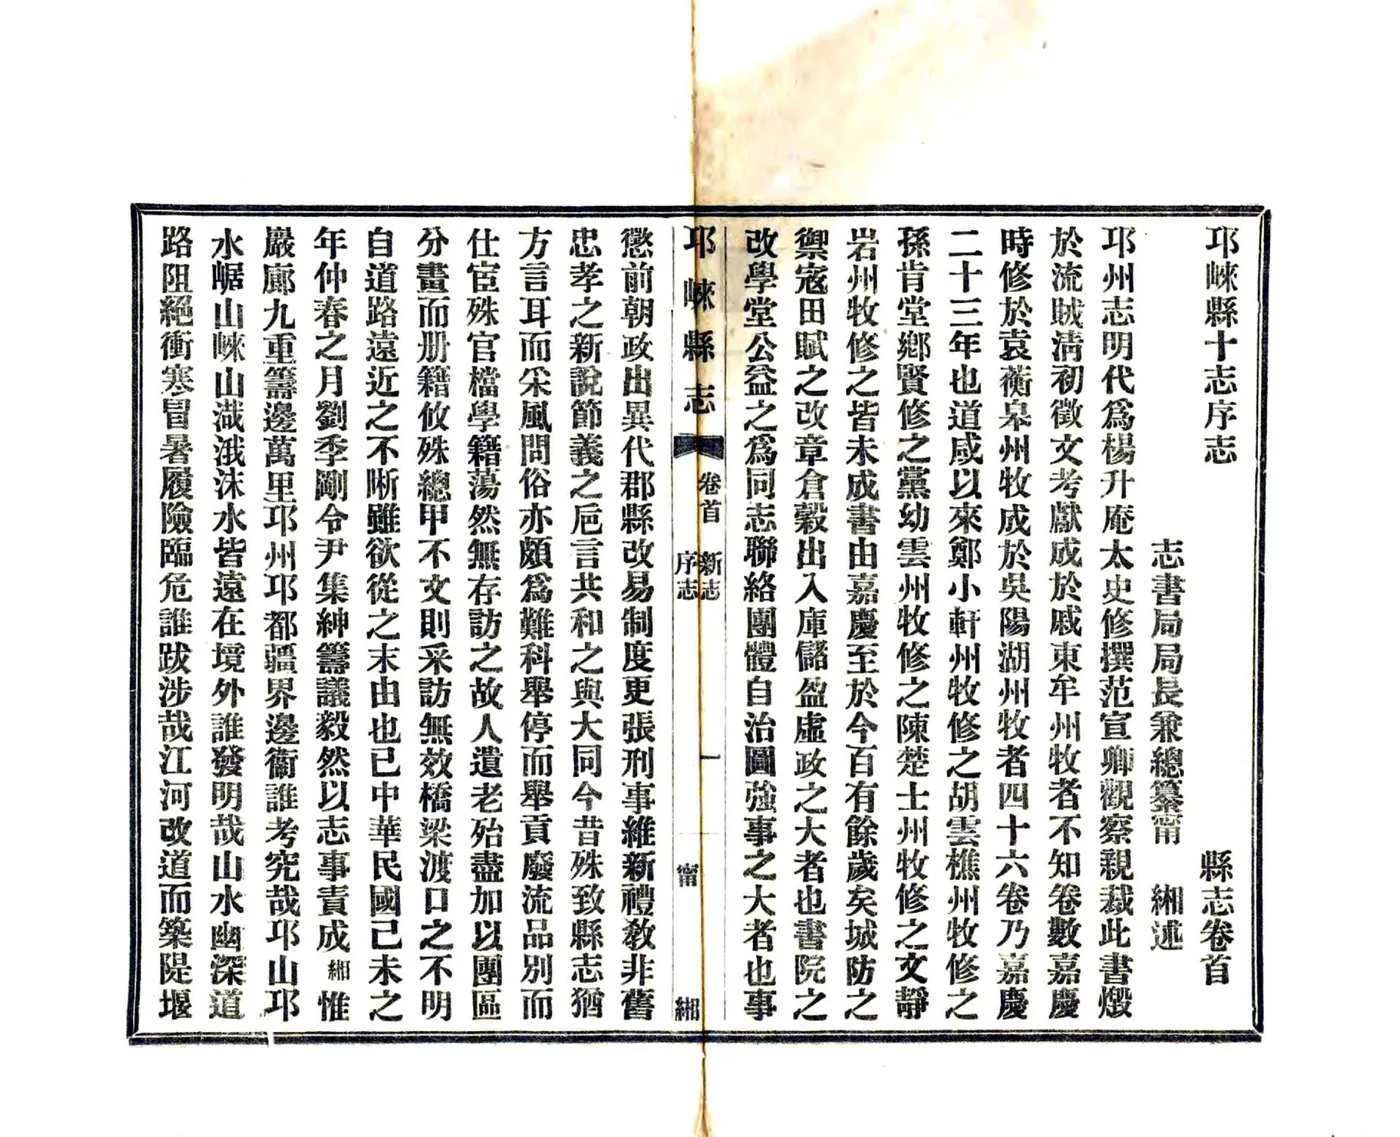 邛崍縣十志序志　縣志卷首
志書局局長兼總纂甯　緗述
邛州志明代爲楊升庵太史修撰范宣卿觀察親裁此書燬
於流賊淸初徵文考獻成於戚東牟州牧者不知卷數嘉慶
時修於袁蘅皋州牧成於吳陽湖州牧者四十六卷乃嘉慶
二十三年也道咸以來鄭小軒州牧修之胡雲樵州牧修之
孫肯堂鄉賢修之黨幼雲州牧修之陳楚士州牧修之文靜
岩州牧修之皆未成書由嘉慶至於今百有餘歲矣城防之
禦寇田賦之改章倉穀出入庫儲盈虛政之大者也書院之
改學堂公益之爲同志聯絡團體自治圖強事之大者也事
邛崍縣志　卷首　新志　序志　一　甯　緗
懲前朝政出異代郡縣改易制度更張刑事維新禮敎非舊
忠孝之新說節義之巵言共和之與大同今昔殊致縣志猶
方言耳而采風問俗亦頗爲難科舉停而舉貢廢流品別而
仕宦殊官檔學籍蕩然無存訪之故人遺老殆盡加以團區
分畫而册籍攸殊總甲不文則采訪無效橋梁渡口之不明
自道路遠近之不晰雖欲從之末由也已中華民國己未之
年仲春之月劉季剛令尹集紳籌議毅然以志事責成緗惟
嚴廊九重籌邊萬里邛州邛都疆界邊衞誰考究哉邛山邛
水崌山崍山濈涐沬水皆遠在境外誰發明哉山水幽深道
路阻絕衝寒冒暑履險臨危誰跋涉哉江河改道而築隄堰